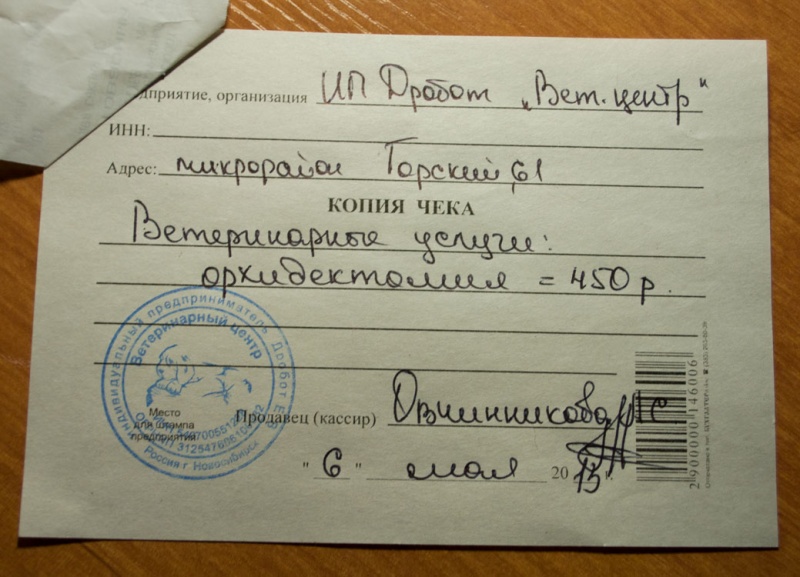 дприятие, организация ИП Дробот „Вет. центр"
ИНН:
Адрес: микрорайон Горский 61
КОПИЯ ЧЕКА
Ветеринарные услуги:
орхидектомия = 450 р.
Индивидуальный предприниматель Дробот
Ветеринарный центр
Россия г Новосибирск
Место
для штампа
предприятия
Продавец (кассир) Овчинникова
" 6 " мая 20 13 г.
2 900000 146006